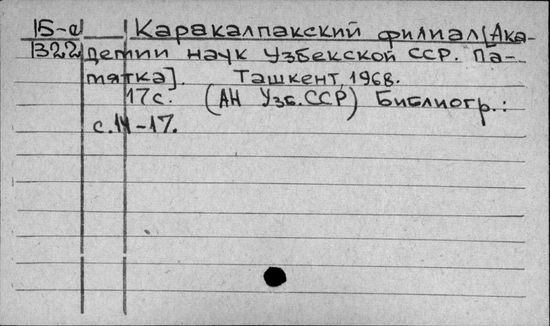 15-а Каракалпакский филиал [Ака-
1322 демии наук Узбекской ССР. Па-
мятка]. Ташкент, 1968.
17с. (АН Узб.ССР) Библиогр.:
с.14-17.